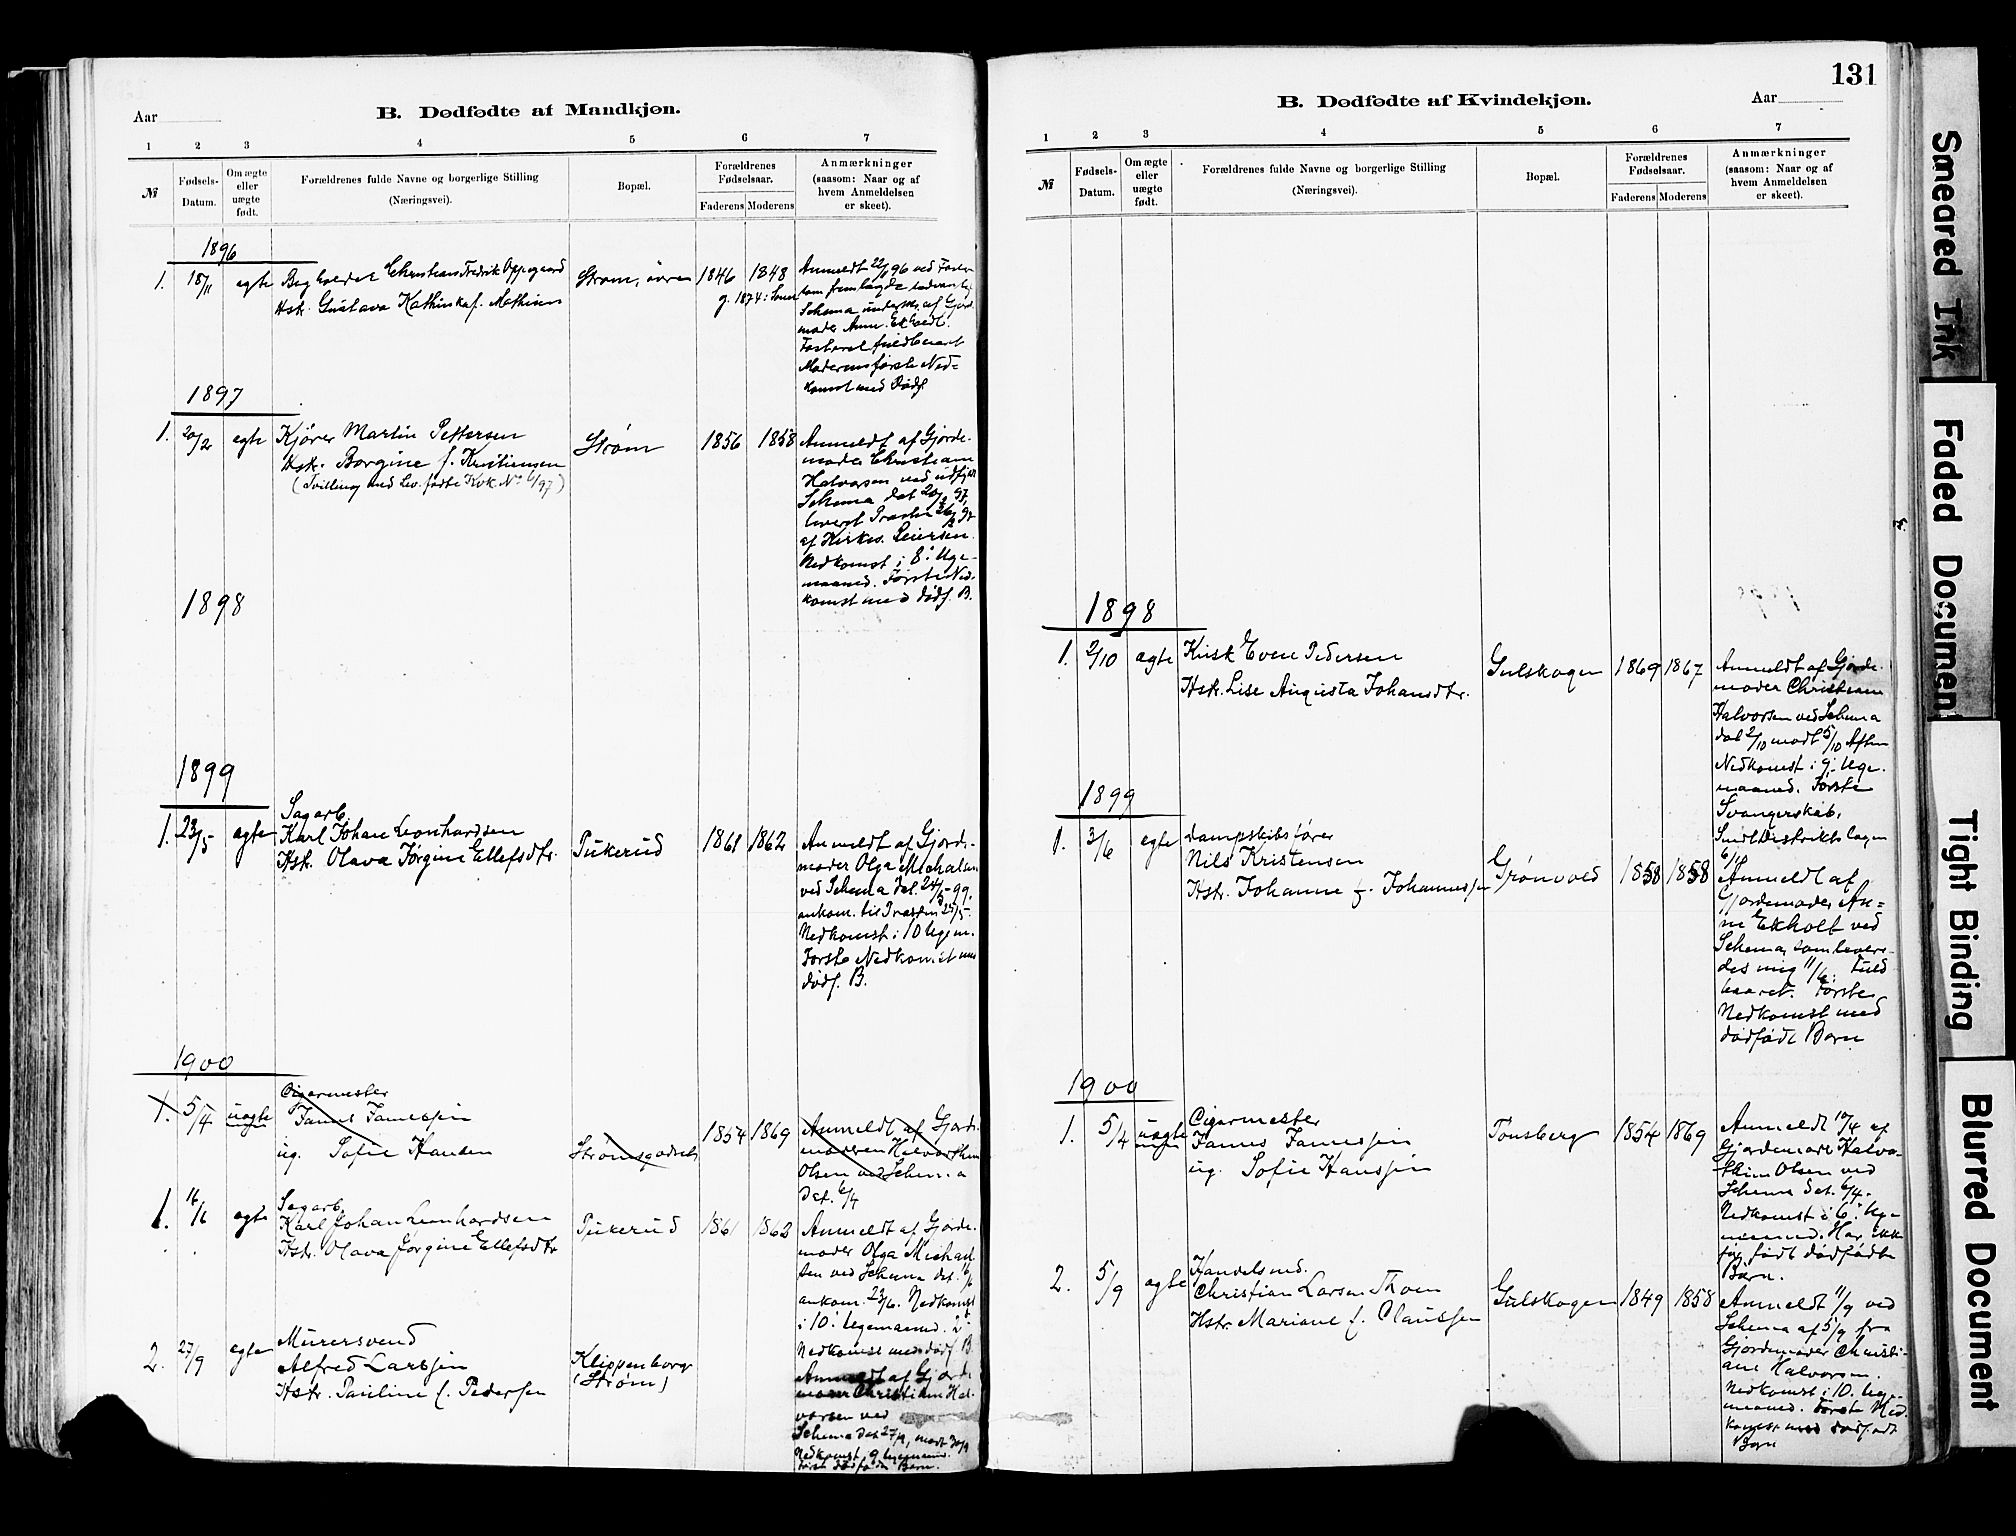 B. Dødfødte af Mandkjøn.
Aar
1 2 3 4 5 6 7
№
Fødsels-
Datum.
Om ægte
eller
uægte
født.
Forældrenes fulde Navne og borgerlige Stilling
(Næringsvei).
Bopæl.
Forældrenes
Fødselsaar.
Faderens Moderens
Anmærkninger
(saasom: Naar og af
hvem Anmeldelsen
er skeet).
1896
1. 18/11 ægte Christian Fredrik Oppegaard
Hstr. Gustava Kathinka f. Mathisen
Strøm, øvre 1846 1848
Anmeldt 22/11 96 ved
Schema af Gjorde-
moder
Moderens første Ned-
komst med Dødf.
1897
1. 20/2 ægte Kjører Martin Pettersen
Hstr. Borgine f. Kristiansen
(Tvilling med Lev. fødte Kvk. No 6/97)
Strøm 1856 1858
Anmeldt af Gjorde-
moder Christiane
Halvorsen ved
Schema dat 20/2 97,
af Kirkes.
Nedkomst i 8. Uge-
maaned. Første Ned-
komst med dødf. B.
1898
1899
1. 23/5 ægte Sagarb.
Karl Johan Leonhardsen
Hstr. Olava Jørgine Ellefsdtr.
Pukerud 1861 1862
Anmeldt af Gjorde-
moder Olga Michalsen
ved Schema dat. 24/5 99,
ankom. til Præsten 25/5.
Nedkomst i 10 Ugem.
Første Nedkomst med
dødf. B.
1900
1. 5/4 uægte Cigarmester
James Jamessen
ug. Sofie Hansen
Strømsgodset 1854 1869
Anmeldt af Gjorde-
moderen
Olsen ved Schema
dat. 6/4
1. 16/6 ægte Sagarb.
Karl Johan Leonhardsen
Hstr. Olava Jørgine Ellefsdtr
Pukerud 1861 1862
Anmeldt af Gjorde-
moder Olga Michael-
sen ved Schema dat. 16/6
ankom. 23/6. Nedkomst
i 10. Ugemaaned. 2.
Nedkomst med dødf. B.
2. 27/9 ægte Murersvend
Alfred Larssen
Hstr. Pauline f. Pedersen
Klippenborg
(Strøm)
Anmeldt af Gjorde-
moder Christiane Hal-
vorsen ved
Schema dat 27/9, modt 30/9
Nedkomst 9 Ugemaaned.
først dødfødte Barn.
131
B. Dødfødte af Kvindekjøn.
Aar
1 2 3 4 5 6 7
№
Fødsels-
Datum.
Om ægte
eller
uægte
født.
Forældrenes fulde Navne og borgerlige Stilling
(Næringsvei).
Bopæl.
Forældrenes
Fødselsaar.
Faderens Moderens
Anmærkninger
(saasom: Naar og af
hvem Anmeldelsen
er skeet).
1898
1. 2/10 ægte Kusk Even Pedersen
Hstr. Lise Augusta Johansdtr.
Gulskogen 1869 1867
Anmeldt af Gjorde-
moder Christiane
Halvorsen ved Schema
dat 2/10 modt 5/10 Aften
Nedkomst i 9. Uge-
maaned. Første
Svangerskab.
1899
1. 3/6 ægte Dampskibsfører
Nils Kristensen
Hstr. Johanne f. Johannessen
Grønvold 1858 1858
Anmeldt af
Gjordemoder An-
ne Ekholt ved
Schema, som lever-
des mig 11/6. Fuld-
baaret. Første
Nedkomst med
dødfødt Barn
1900
1. 5/4 uægte Cigarmester
James Jamessen
ug. Sofie Hanssen
Tønsberg 1854 1869
Anmeldt 10/4 af
Gjordemoder
Olsen ved
Schema dat. 6/4.
Nedkomst i 6. Uge-
maaned. Har ikke
før født dødfødte
Børn.
2. 5/9 ægte Handelsmd.
Christian Larsen Thoen
Hstr. Mariane f. Claussen
Gulskogen 1849 1858
Anmeldt 11/9 ved
Schema af 5/9 fra
Gjordemoder Christi-
ane Halvorsen.
Nedkomst i 10. Uge-
maaned. Første Ned-
komst med dødfødt
Barn
Smeared Ink
Faded Document
Tight Binding
Blurred Document